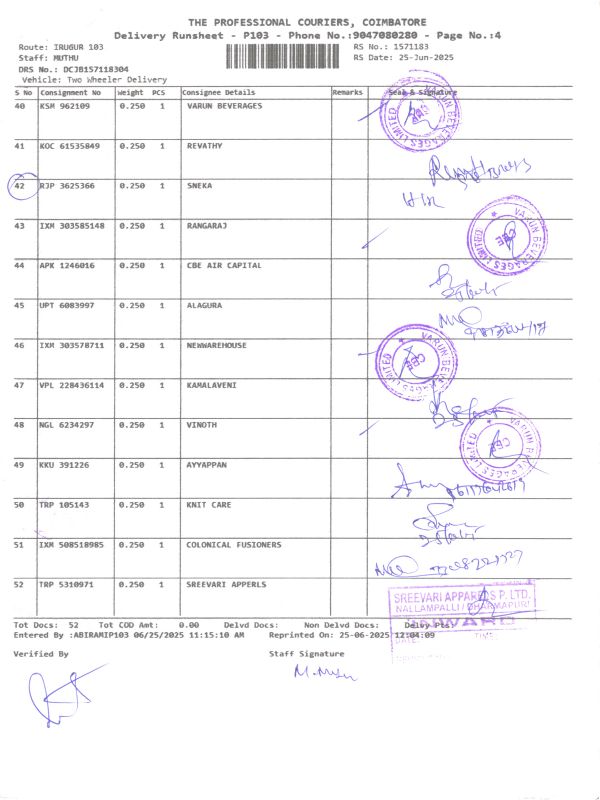 THE PROFESSIONAL COURIERS, COIMBATORE
Delivery Runsheet - P103 - Phone No.:9047080280 - Page No.:4
Route: IRUGUR 103
Staff: MUTHU
DRS No.: DCJB157118304
Vehicle: Two Wheeler Delivery
RS No.: 1571183
RS Date: 25-Jun-2025
S No Consignment No Weight PCS Consignee Details Remarks Seal & Signature
40 KSM 962109 0.250 1 VARUN BEVERAGES
41 KOC 61535849 0.250 1 REVATHY
42 RJP 3625366 0.250 1 SNEKA
43 IXM 303585148 0.250 1 RANGARAJ
44 APK 1246016 0.250 1 CBE AIR CAPITAL
45 UPT 6083997 0.250 1 ALAGURA
46 IXM 303578711 0.250 1 NEWWAREHOUSE
47 VPL 228436114 0.250 1 KAMALAVENI
48 NGL 6234297 0.250 1 VINOTH
49 KKU 391226 0.250 1 AYYAPPAN
50 TRP 105143 0.250 1 KNIT CARE
51 IXM 508518985 0.250 1 COLONICAL FUSIONERS
52 TRP 5310971 0.250 1 SREEVARI APPERLS
VARUN BEVERAGES LIMITED
CBE
VARUN BEVERAGES LIMITED
CBE
VARUN BEVERAGES LIMITED
CBE
VARUN BEVERAGES LIMITED
CBE
SREEVARI APPARELS P. LTD.
NALLAMPALLI / DHARMAPURI
INWARD
DATE
TIME
Tot Docs: 52 Tot COD Amt: 0.00 Delvd Docs: Non Delvd Docs: Delvy Pts:
Entered By :ABIRAMIP103 06/25/2025 11:15:10 AM Reprinted On: 25-06-2025 12:04:09
Verified By Staff Signature